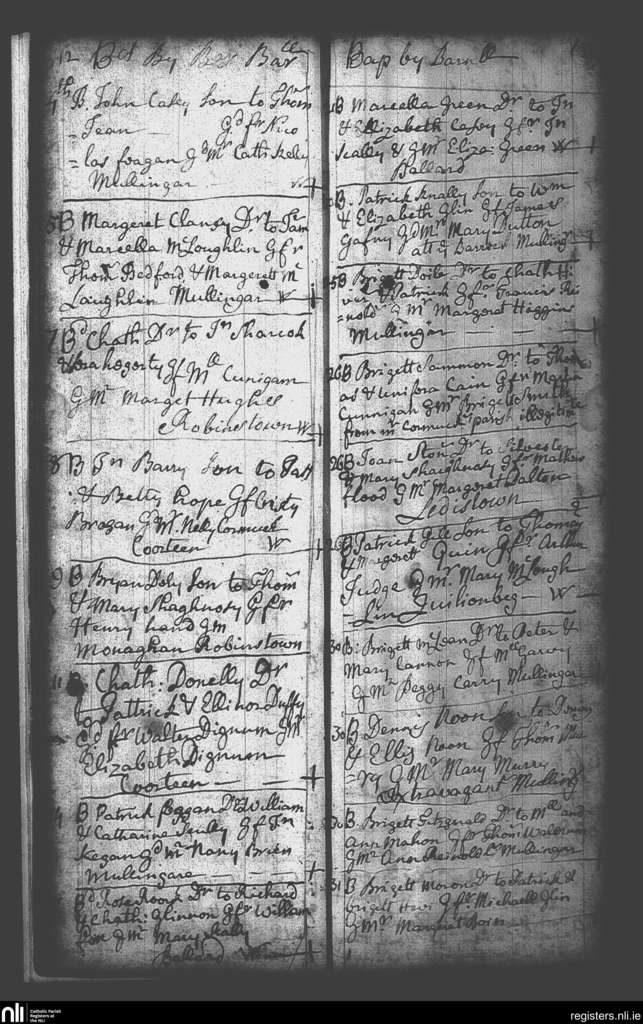 12 Bd By Bar
B. John Casey Son to Thom
= Jean Gd fr Nico
= las foagan Gd Mr Cath Kelly
Mullingar
5 B Margeret Clansy Dr to Jam
& Marcella McLoughlin G fr
Thom Bedford & Margerett Mc
Laughlin Mullingar W
7 Bd Chath Dr to Jn Sharcok
hogorty Gf Ml Cunigam
G Mr Margret Hughes
Robinstown W
8 B Jn Barry Son to Patt
& Betty hope Gf Cristy
Brogan G Mr Nelly Cormuck
Coorteen W
9 B Bryan Doly Son to Thom
& Mary Shaghnosy G fr
Henry hand G m
Monaghan Robinstown
11 B Chath: Donelly Dr
to Pattrick & Ellinor Duffy
Gd fr Walter Dignum G Mr
Elizabeth Dignum
Coorteen
B Patrick foggan Dr to William
& Catharine Scully Gf Jn
Keegan Gd mr Nany Brien
Mullingare
Bd Rose Roork Dr to Richard
& Chath: Glinnon G fr William
G Mr Mary
Ballard
Bap by Barnll
B Marcella Green Dr to Jn
& Elizabeth Casey G fr Jn
Scally & G Mr Eliza: Green W
Ballard
B. Patrick Knally Son to Wm
& Elizabeth Glin G f James
Gafny Gd Mr Mary Dutton
att ye Barrack Mulling
25 B Brigett Doile Dr to Chath Hi
ver & Patrick G fr Francis Re
= nold G Mr Margeret Higgins
Mullingar
26 B Brigett Sammon Dr to Thom
as & Unifora Cain G fr Martin
Cunnigan G Mr Briget Smith
from mr Cormucks parish illegitim
26 B Joan Ston Dr to Silvester
& Mary Shaughnosy G fr Mathew
flood G Mr Margeret Dalton
Ledistown
B Patrick Gile Son to Thomas
& Margeret Quin G fr Arthur
Judge G Mr Mary McLough
= Lin Quilionbeg W
30 B: Brigett McLean Dr to Peter &
Mary Cannon Gf Ml Carry
G Mr Peggy Carry Mullingar
30 B Dennis Noon Son to
& Ellis Noon Gf Thom Mur
= ry G Mr Mary Murry
Extravagant Mulling
30 B Brigett Fitzgerald Dr to Ml and
Ann Mahon G fr Thom Waldrum
G Mr Ann Reinolds Mullingar
31 B Brigett Moron Dr to Patrick &
Brigett G fr Michaell Glin
G Mr Margret
nli
Catholic Parish
Registers at
the NLI
registers.nli.ie